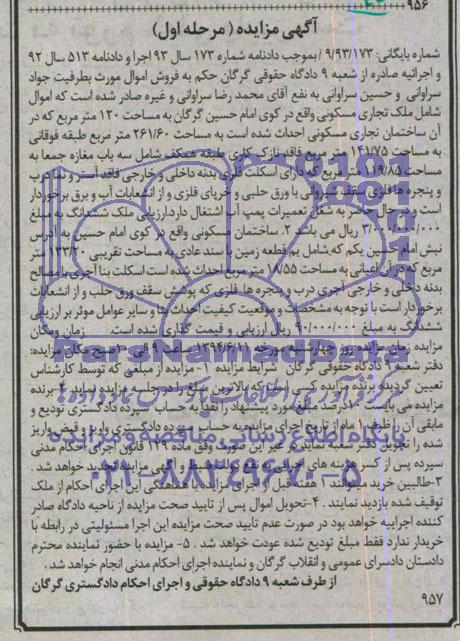 ۹۵۶
آگهی مزایده (مرحله اول)
شماره بایگانی: ۹/۹۳/۱۷۳ / بموجب دادنامه شماره ۱۷۳ سال ۹۳ اجرا و دادنامه ۵۱۳ سال ۹۲
و اجرائیه صادره از شعبه ۹ دادگاه حقوقی گرگان حکم به فروش اموال مورث بطرفیت جواد
سراوانی و حسین سراوانی به نفع آقای محمد رضا سراوانی و غیره صادر شده است که اموال
شامل ملک تجاری مسکونی واقع در کوی امام حسین گرگان به مساحت ۱۲۰ متر مربع که در
آن ساختمان تجاری مسکونی احداث شده است به مساحت ۲۶۱/۶۰ متر مربع طبقه فوقانی
به مساحت ۱۴۱/۷۵ متر مربع فاقد نازک کاری طبقه همکف شامل سه باب مغازه جمعا به
مساحت ۱۱۹/۸۵ متر مربع که دارای اسکلت فلزی بدنه داخلی و خارجی فاقد آستر و نما درب
و پنجره ها فلزی سقف شیروانی با ورق حلبی و خرپای فلزی و از انشعابات آب و برق برخوردار
است و در حال حاضر به شغل تعمیرات پمپ آب اشتغال دارد ارزیابی ملک ششدانگ به مبلغ
ریال می باشد ۲. ساختمان مسکونی واقع در کوی امام حسین به آدرس
نبش امام حسین یکم که شامل یم قطعه زمین با سند عادی به مساحت تقریبی متر
مربع که در آن اعیانی به مساحت ۱۸/۵۵ متر مربع احداث شده است اسکلت بنا آجری با مصالح
بدنه داخلی و خارجی آجری درب و پنجره ها فلزی که پوشش سقف ورق حلب و از انشعابات
برخوردار است با توجه به مشخصات و موقعیت کیفیت احداث بنا و سایر عوامل موثر بر ارزیابی
ششدانگ به مبلغ ۹۰/۰۰۰/۰۰۰ ریال ارزیابی و قیمت گذاری شده است. زمان ومکان
مزایده زمان مزایده روز چهارشنبه مورخه ۱۳۹۴/۶/۱۱ ساعت ۹ الی ۱۰ صبح مکان مزایده:
دفتر شعبه ۹ دادگاه حقوقی گرگان شرایط مزایده ۱- مزایده از مبلغی که توسط کارشناس
تعیین گردیده برنده مزایده کسی است که بالاترین مبلغ را در جلسه مزایده نماید ۲- برنده
مزایده می بایست ۱۰ درصد مبلغ مورد پیشنهاد را نقدا به حساب سپرده دادگستری تودیع و
مابقی آن را ظرف ۱ ماه از تاریخ اجرای مزایده به حساب سپرده دادگستری واریز و قبض واریز
شده را تحویل دفتر شعبه نماید در غیر این صورت وفق ماده ۱۲۹ قانون اجرای احکام مدنی
سپرده پس از کسر هزینه های اجرائی به نفع دولت ضبط و آگهی مزایده تجدید خواهد شد.
۳-طالبین خرید می توانند ۱ هفته قبل از اجرای مزایده با هماهنگی این اجرای احکام از ملک
توقیف شده بازدید نمایند. ۴-تحویل اموال پس از تایید صحت مزایده از ناحیه دادگاه صادر
کننده اجراییه خواهد بود در صورت عدم تایید صحت مزایده این اجرا مسئولیتی در رابطه با
خریدار ندارد فقط مبلغ تودیع شده عودت خواهد شد. ۵- مزایده با حضور نماینده محترم
دادستان دادسرای عمومی و انقلاب گرگان و نماینده اجرای احکام مدنی انجام خواهد شد.
از طرف شعبه ۹ دادگاه حقوقی و اجرای احکام دادگستری گرگان
۹۵۷
ParsNamadData
پایگاه اطلاع رسانی مناقصه و مزایده
۰۲۱-۸۸۳۴۹۶۷۰-۵